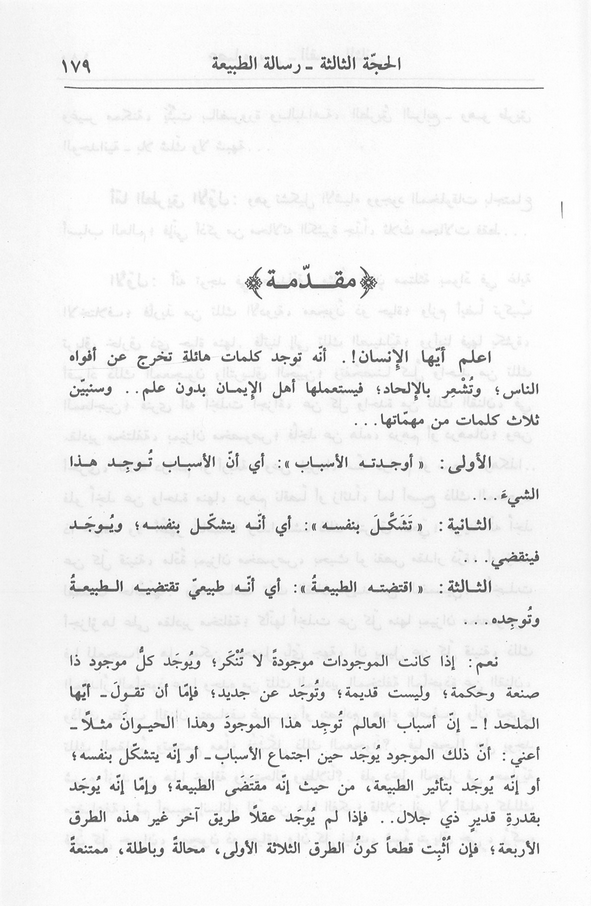 الحجّة الثالثة - رسالة الطبيعة ١٧٩
﴿مقدّمة﴾
اعلم أيّها الإنسان!. أنّه توجد كلمات هائلة تخرج عن أفواه
الناس؛ وتُشْعِر بالإلحاد؛ فيستعملها أهل الإيمان بدون علم.. وسنبيّن
ثلاث كلمات من مهمّاتها...
الأولى: «أوجدته الأسباب»: أي أنّ الأسباب تُوجِد هذا
الشيءَ....
الثانية: «تَشَكَّلَ بنفسه»: أي أنّه يتشكّل بنفسه؛ ويُوجَد
فينقضي...
الثالثة: «اقتضته الطبيعةُ»: أي أنّه طبيعيّ تقتضيه الطبيعةُ
وتُوجِده...
نعم: إذا كانت الموجودات موجودةً لا تُنْكَر؛ ويُوجَد كلُّ موجود ذا
صنعة وحكمة؛ وليست قديمة؛ وتُوجَد عن جديد؛ فإمّا أن تقولَ- أيّها
الملحد!- إنّ أسباب العالم تُوجِد هذا الموجودَ وهذا الحيوانَ مثلًا-
أعني: أنّ ذلك الموجود يُوجَد حين اجتماع الأسباب- أو إنّه يتشكّل بنفسه؛
أو إنّه يُوجَد بتأثير الطبيعة، من حيث إنّه مقتَضَى الطبيعة؛ وإمّا إنّه يُوجَد
بقدرةِ قديرٍ ذي جلال.. فإذا لم يُوجَد عقلًا طريق آخر غير هذه الطرق
الأربعة؛ فإن أُثْبِت قطعاً كونُ الطرق الثلاثة الأولى، محالةً وباطلة، ممتنعةً